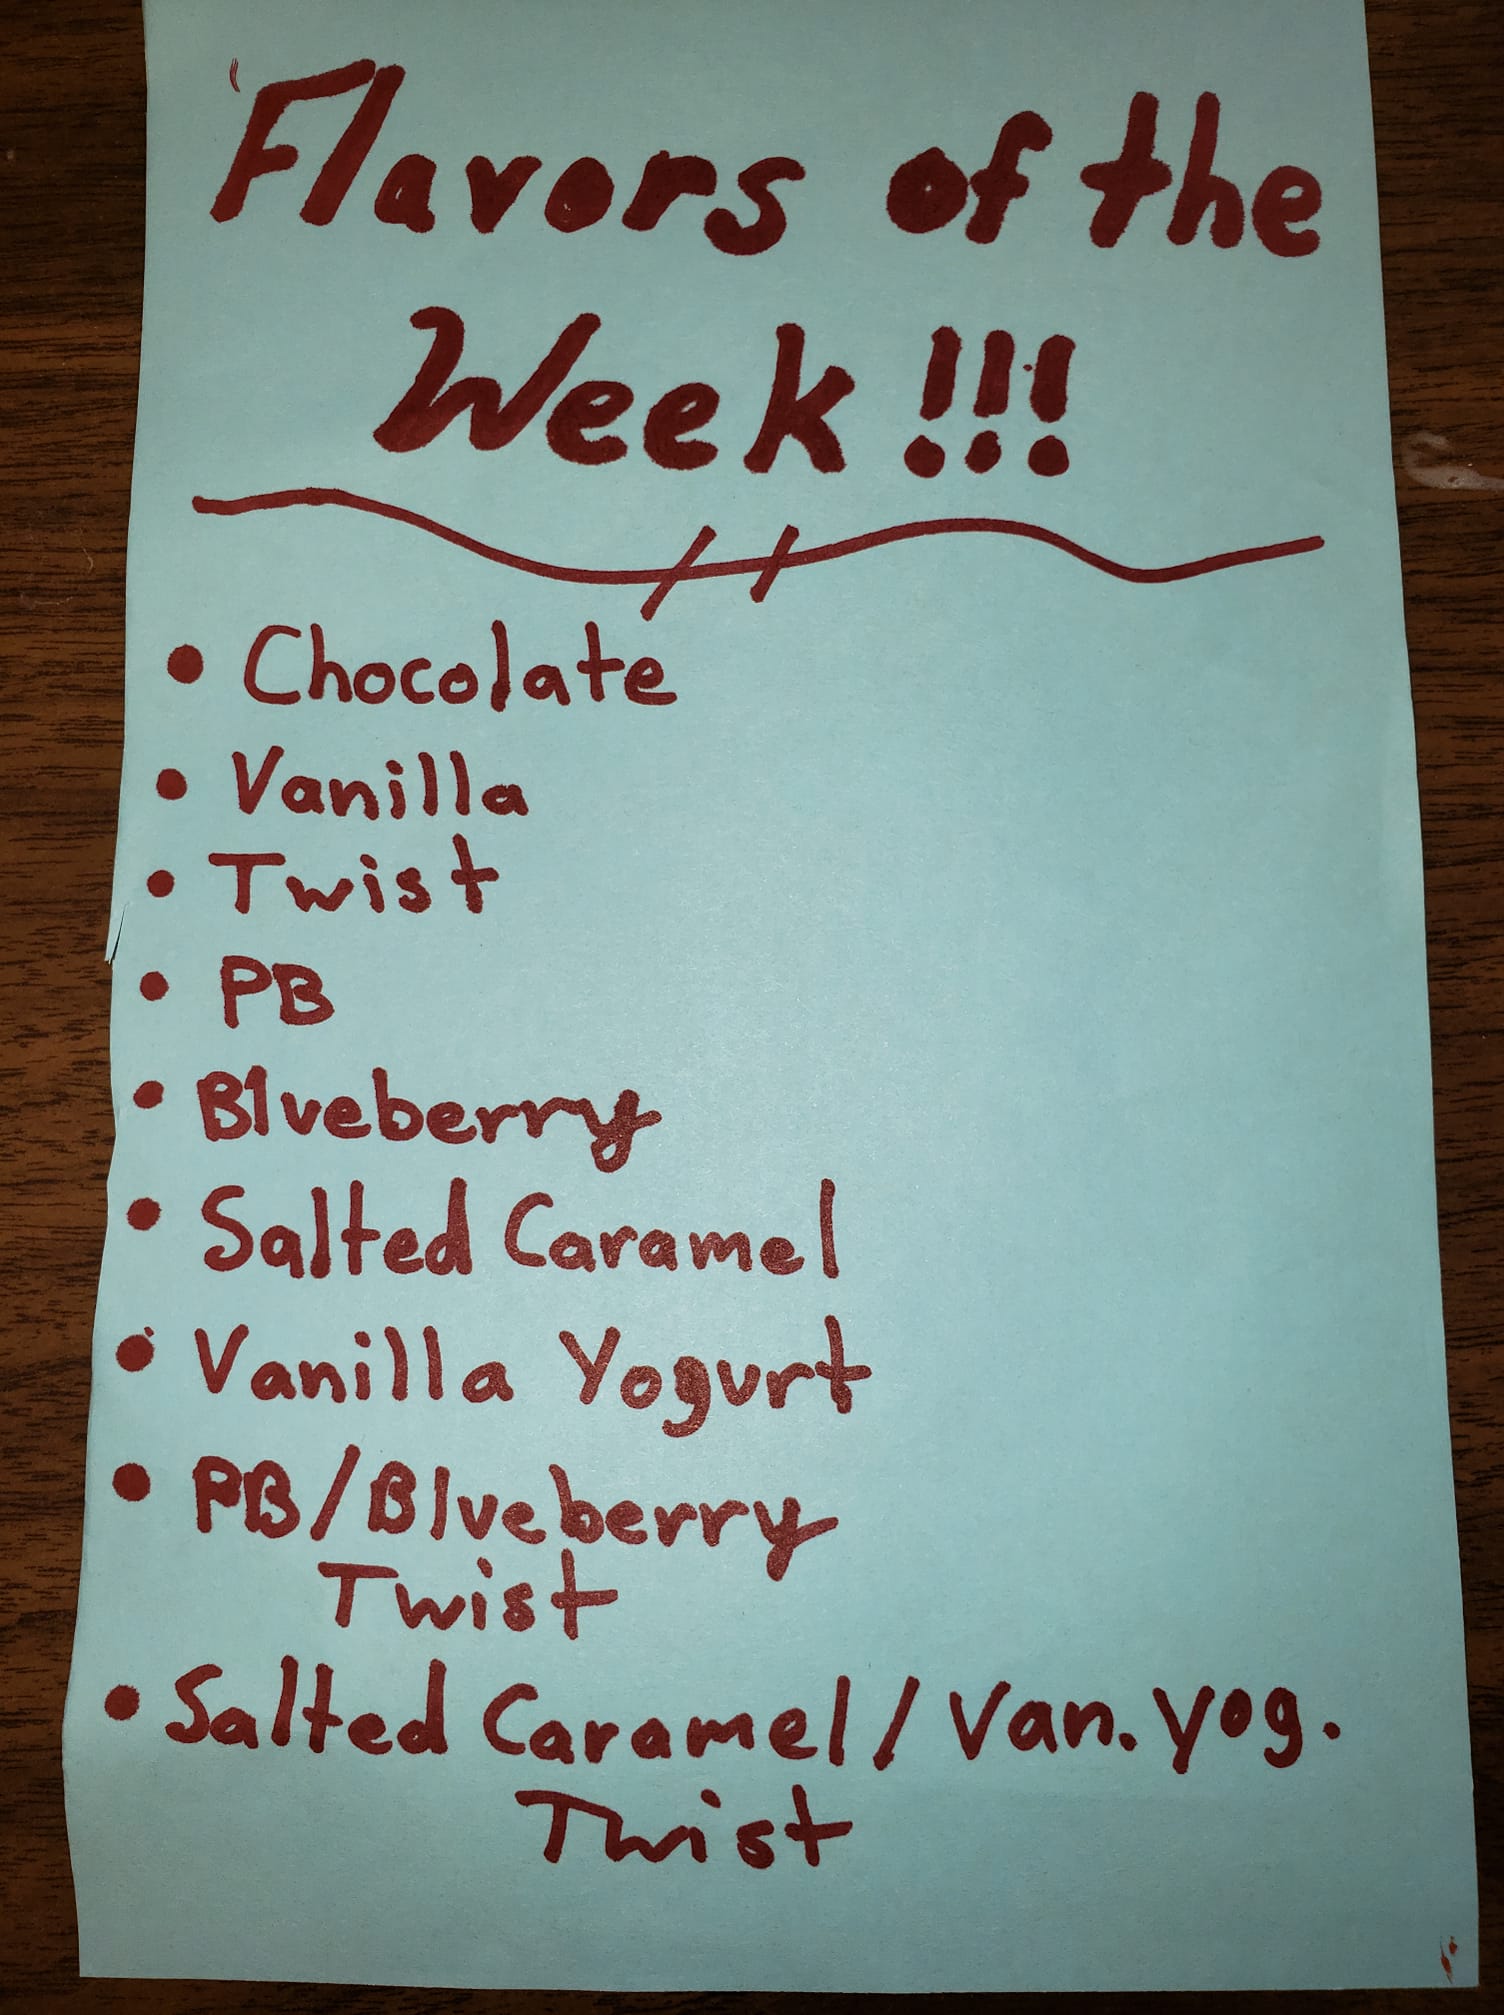 Flavors of the
Week!!!
• Chocolate
• Vanilla
• Twist
• PB
• Blueberry
• Salted Caramel
• Vanilla Yogurt
• PB/Blueberry
Twist
• Salted Caramel/Van. Yog.
Twist